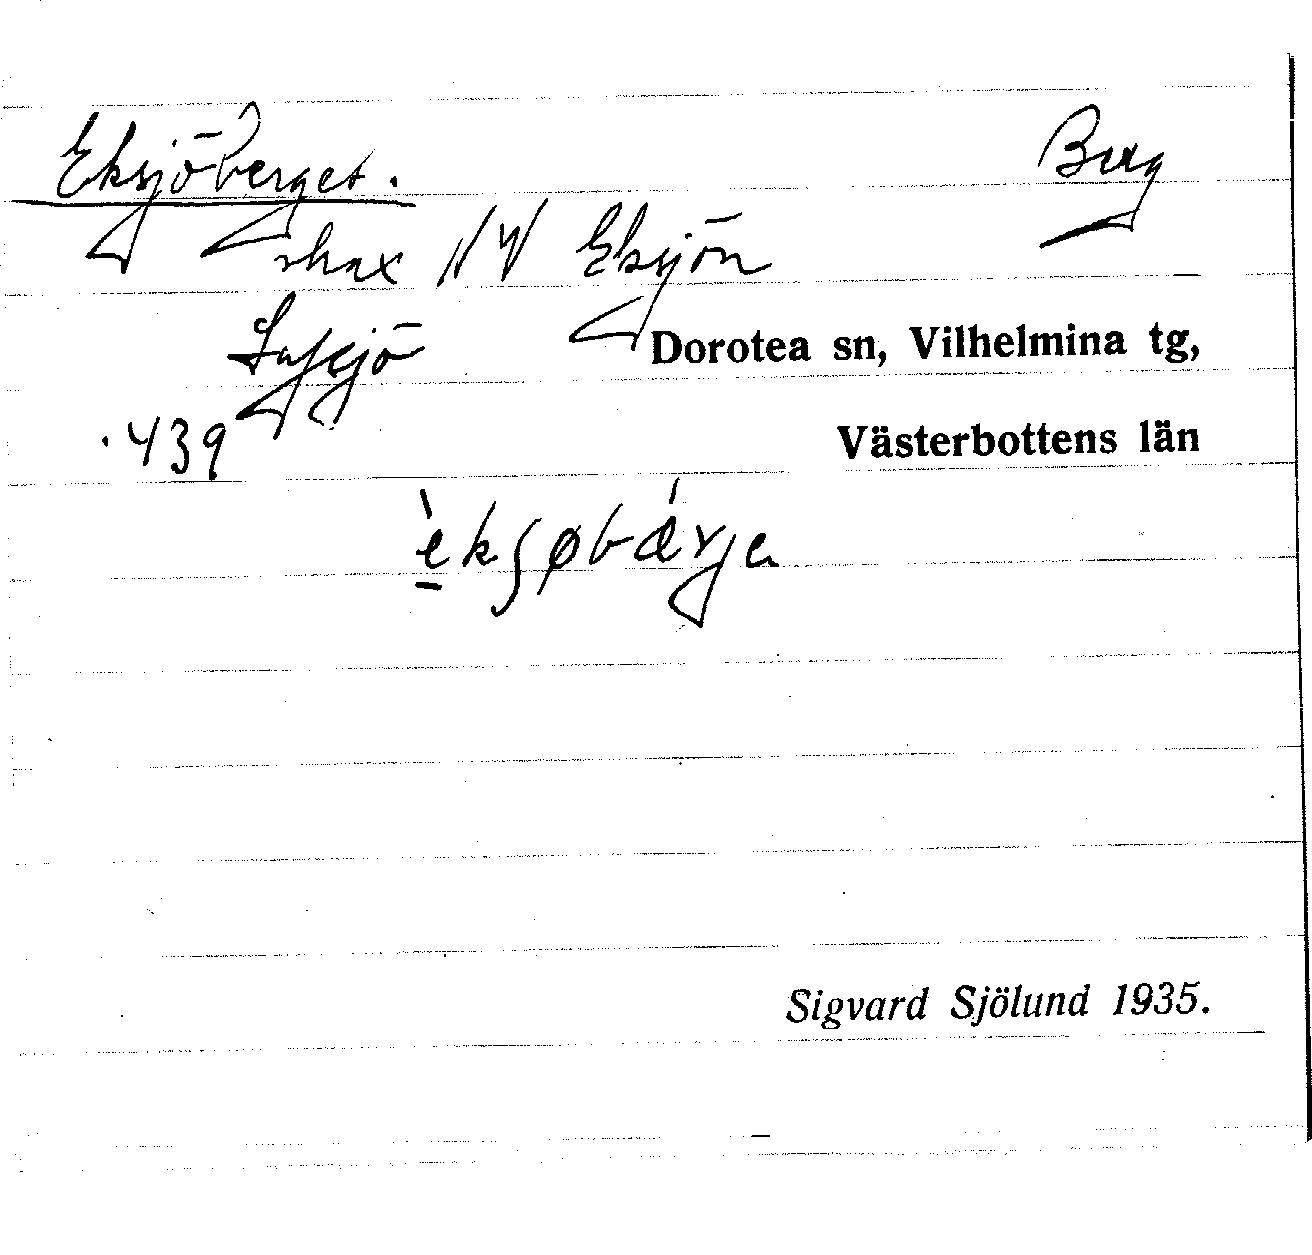 Eksjöberget. Berg
strax NV Eksjön
Lafsjö
Dorotea sn, Vilhelmina tg,
439
Västerbottens län
è̠kʃøbǽrjɐ
Sigvard Sjölund 1935.